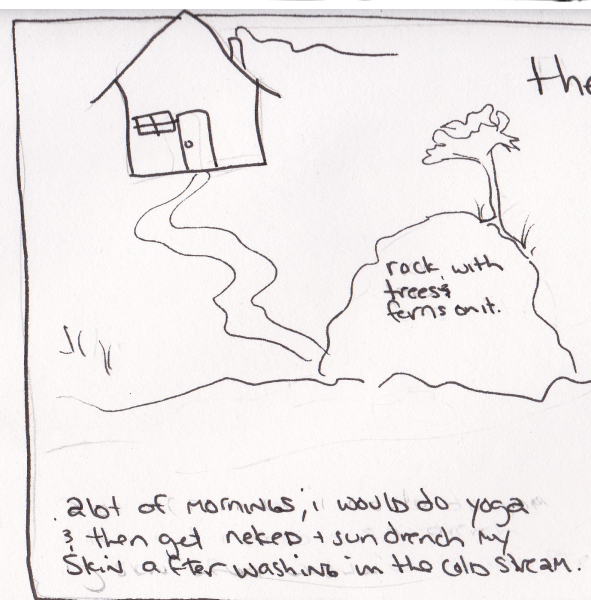 the
rock with
trees &
ferns on it.
alot of mornings, i would do yoga
& then get neked + sun drench my
skin after washing in the cold stream.